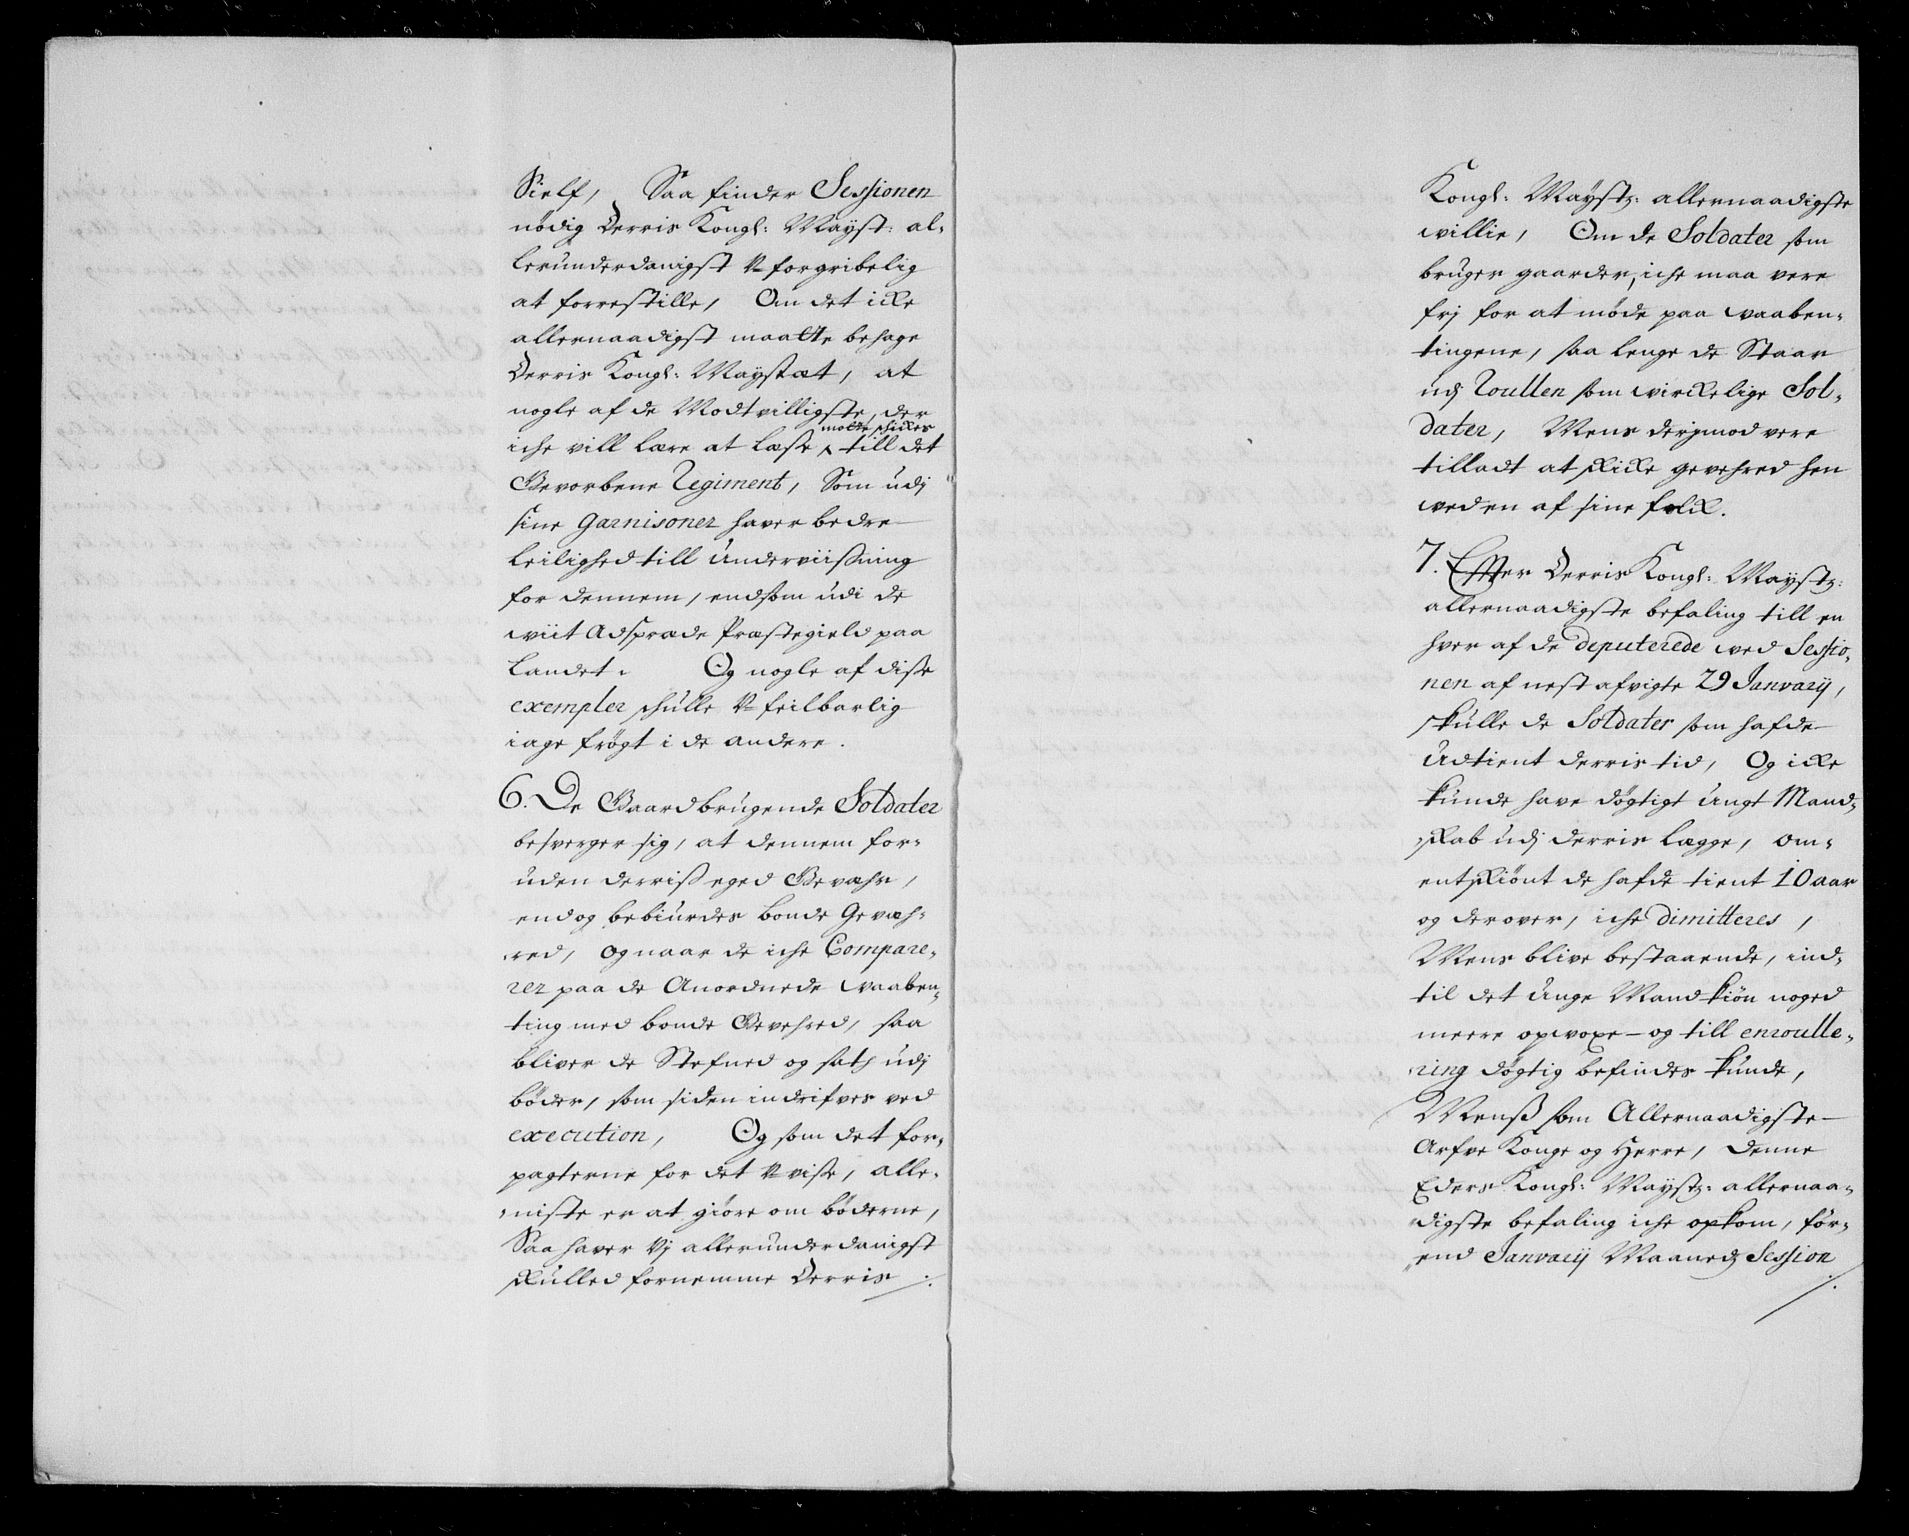 Sielf, Saa finder Sessionen
nödig Derris Kongl: Mayst: al-
lerunderdanigst U-forgribelig
at forrestille, Om det icke
allernaadigst maatte behage
Derris Kongl: Maystæt, at
nogle af de Modtvilligste, der
iche vill lære at læsse ^ motte schickes till det
Gevorbene Regiment, Som udj
sine Garnisoner haver bedre
leilighed till Underviissning
for dennem, endsom udi de
wiit Adsprede Præstegield paa
Landet. Og nogle af disse
exempler schulle U-feilbarlig
iage frögt i de andre.
6. De Gaardbrugende Soldater
besverger sig, at dennem for-
uden derriss eged Gevæhr,
endog bebiurdes bonde Gevæh-
red, og naar de iche Compare-
rer paa de Anordnede waaben-
ting med bonde Gevehred, saa
bliver de Stefned og satt udj
böder, som siden indrifves ved
execution, Og som det for-
pagterne for det U-visse, alle-
niste er at giöre om böderne,
Saa haver Vj allerunderdanigst
skulled fornemme Derris ./.
Kongl: Maystz: allernaadigste
willie, Om de Soldater som
bruger gaarder, iche maa vere
frj for at møde paa waaben-
tingene, saa lenge de Staar
udj Roullen som wirckelige Sol-
dater, Mens derjmod vere
tilladt at skicke gevehred hen
wed en af sine folck.
7. Effter Derris Kongl: Maystz:
allernaadigste befaling till en
hver af de deputerede wed Sessio-
nen af nest afvigte 29 Janvarij,
skulle de Soldater som hafde
Udtient derris tid, Og icke
kunde have dögtigt Ungt Mand-
skab udj derris lægge, om-
entskiönt de hafde tient 10 aar
og derover, iche dimitteres,
Mens blive bestaaende, ind-
til det Unge Mandkiön noged
meere opwoxe- og till enroulle-
ring dögtig befindes kunde,
Menss som Allernaadigste
Arfve Konge og Herre, denne
Eders Kongl: Maystz: allernaa-
digste befaling iche opkom, för-
end Janvarij Maanedz Session
./.